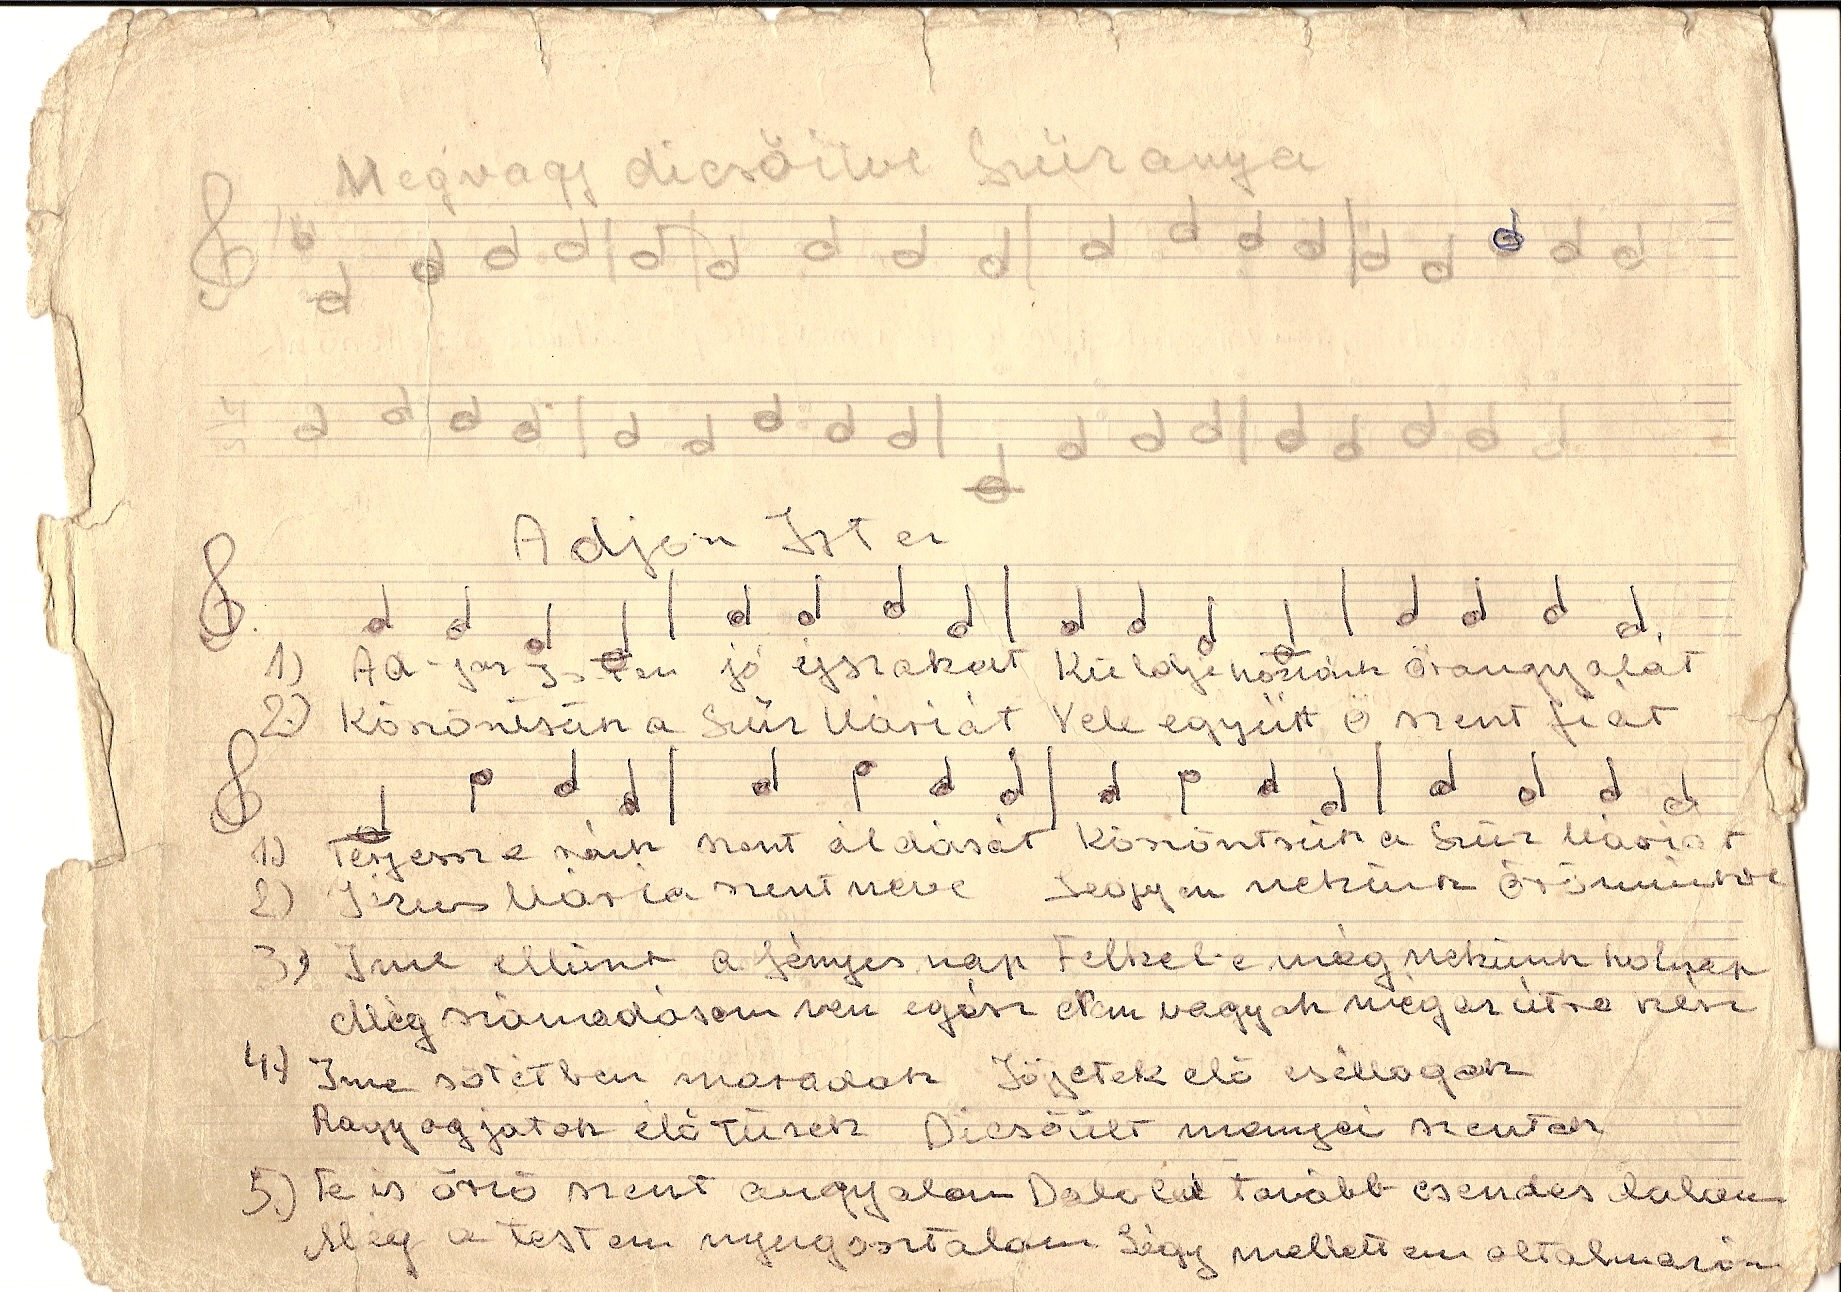 Megvagy dicsőitve Szűz anya
Adjon Isten
1) Ad-jon Is-ten jó éjszakát Küldje hozzánk őrangyalát
2.) Köszöntsük a Szűz Máriát Vele együtt ő szent fiát
1) Terjessze ránk szent áldását Köszöntsük a Szűz Máriát
2) Jézus Mária szent neve Legyen nekünk örömünkre
3) Ime eltünt a fényes nap Felkel-e még nekünk holnap
Még számadásom van egész Nem vagyok még az útra kész
4.) Ime sötétben maradok Jöjjetek elő csillagok
Ragyogjatok élő tüzek Dicsőült mennyei szentek
5.) Te is őrző szent angyalom Dalold tovább csendes dalom
Míg a testem nyugosztalom Légy mellettem oltalmazóm